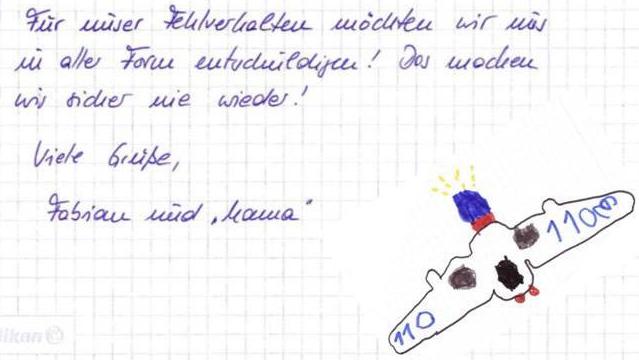 Für unser Fehlverhalten möchten wir uns
in aller Form entschuldigen! Das machen
wir sicher nie wieder!
Viele Grüße,
Fabian und „Mama"
110
110
likan